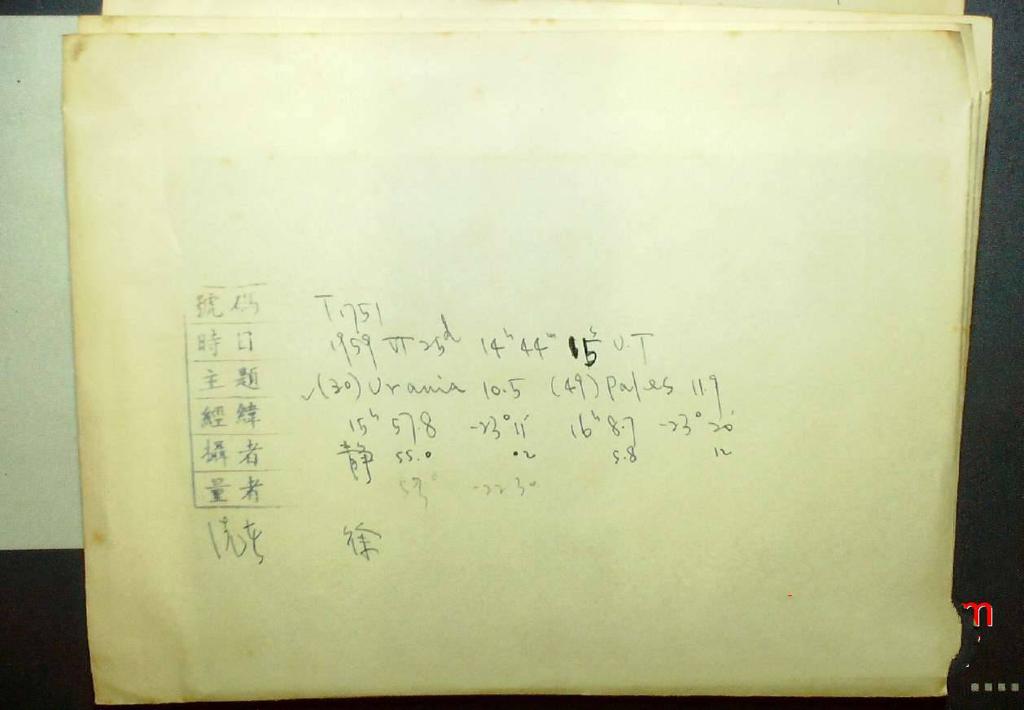 號碼 T.1751
時日 1959 VI 25d 14h 44m 15s U.T
主題 ✓(30) Urania 10.5 (49) Pales 11.9
經緯 15h 57.8 -23° 11' 16h 8.7 -23° 20'
攝者 静 55.0 02 5.8 12
量者 -22 30
徐
m